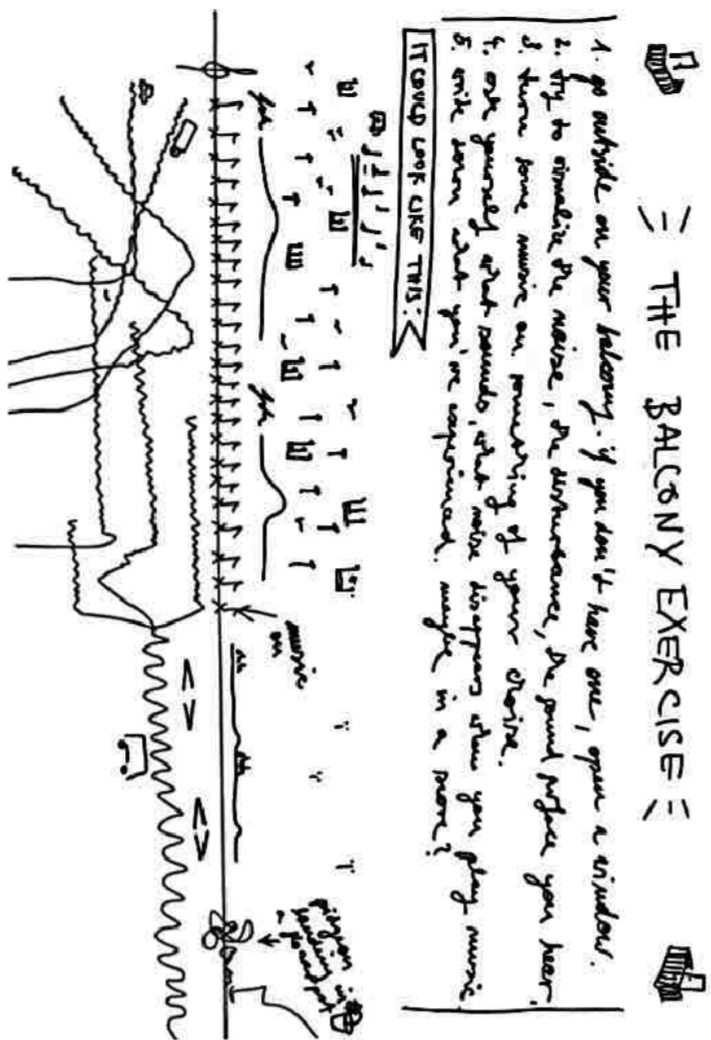 THE BALCONY EXERCISE
1. go outside on your balcony. if you don't have one, open a window.
2. try to visualize the noise, the disturbance, the sound surface you hear.
3. turn some music on. something of your choice.
4. ask yourself what sounds, what noise disappears when you play music.
5. write down what you've experienced. maybe in a score?
IT COULD LOOK LIKE THIS:
music
on
pigeon
landing in
a plant pot